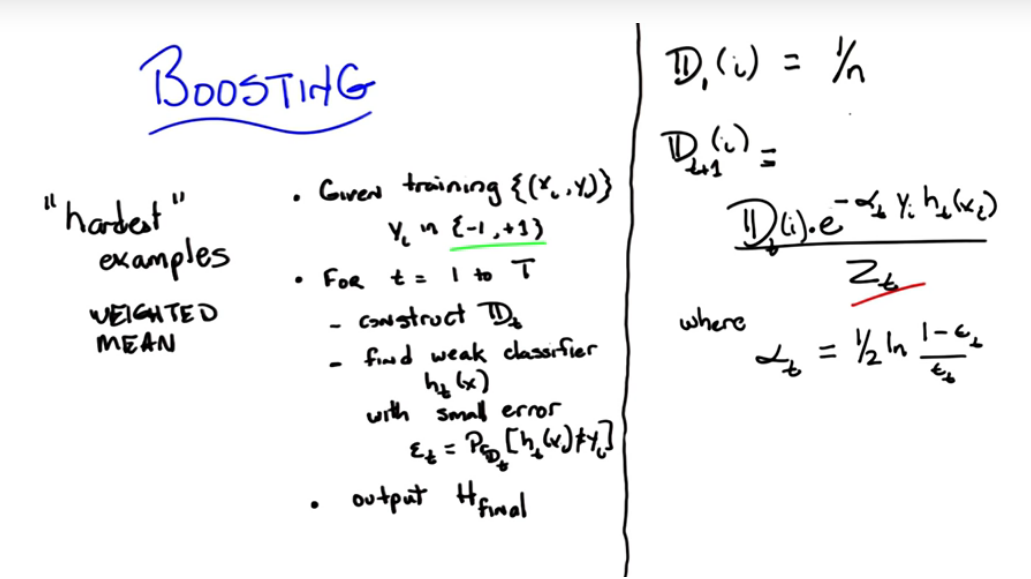 BOOSTING
"hardest"
examples
WEIGHTED
MEAN
• Given training {(xᵢ, yᵢ)}
yᵢ in {-1, +1}
• For t = 1 to T
- construct 𝔻ₜ
- find weak classifier
hₜ(x)
with small error
εₜ = P𝔻ₜ[hₜ(xᵢ)≠yᵢ]
• output H_final
𝔻₁(i) = 1/n
𝔻ₜ₊₁(i) =
𝔻ₜ(i)·e^(-αₜ yᵢ hₜ(xᵢ))
Zₜ
where
αₜ = 1/2 ln (1-εₜ)/εₜ